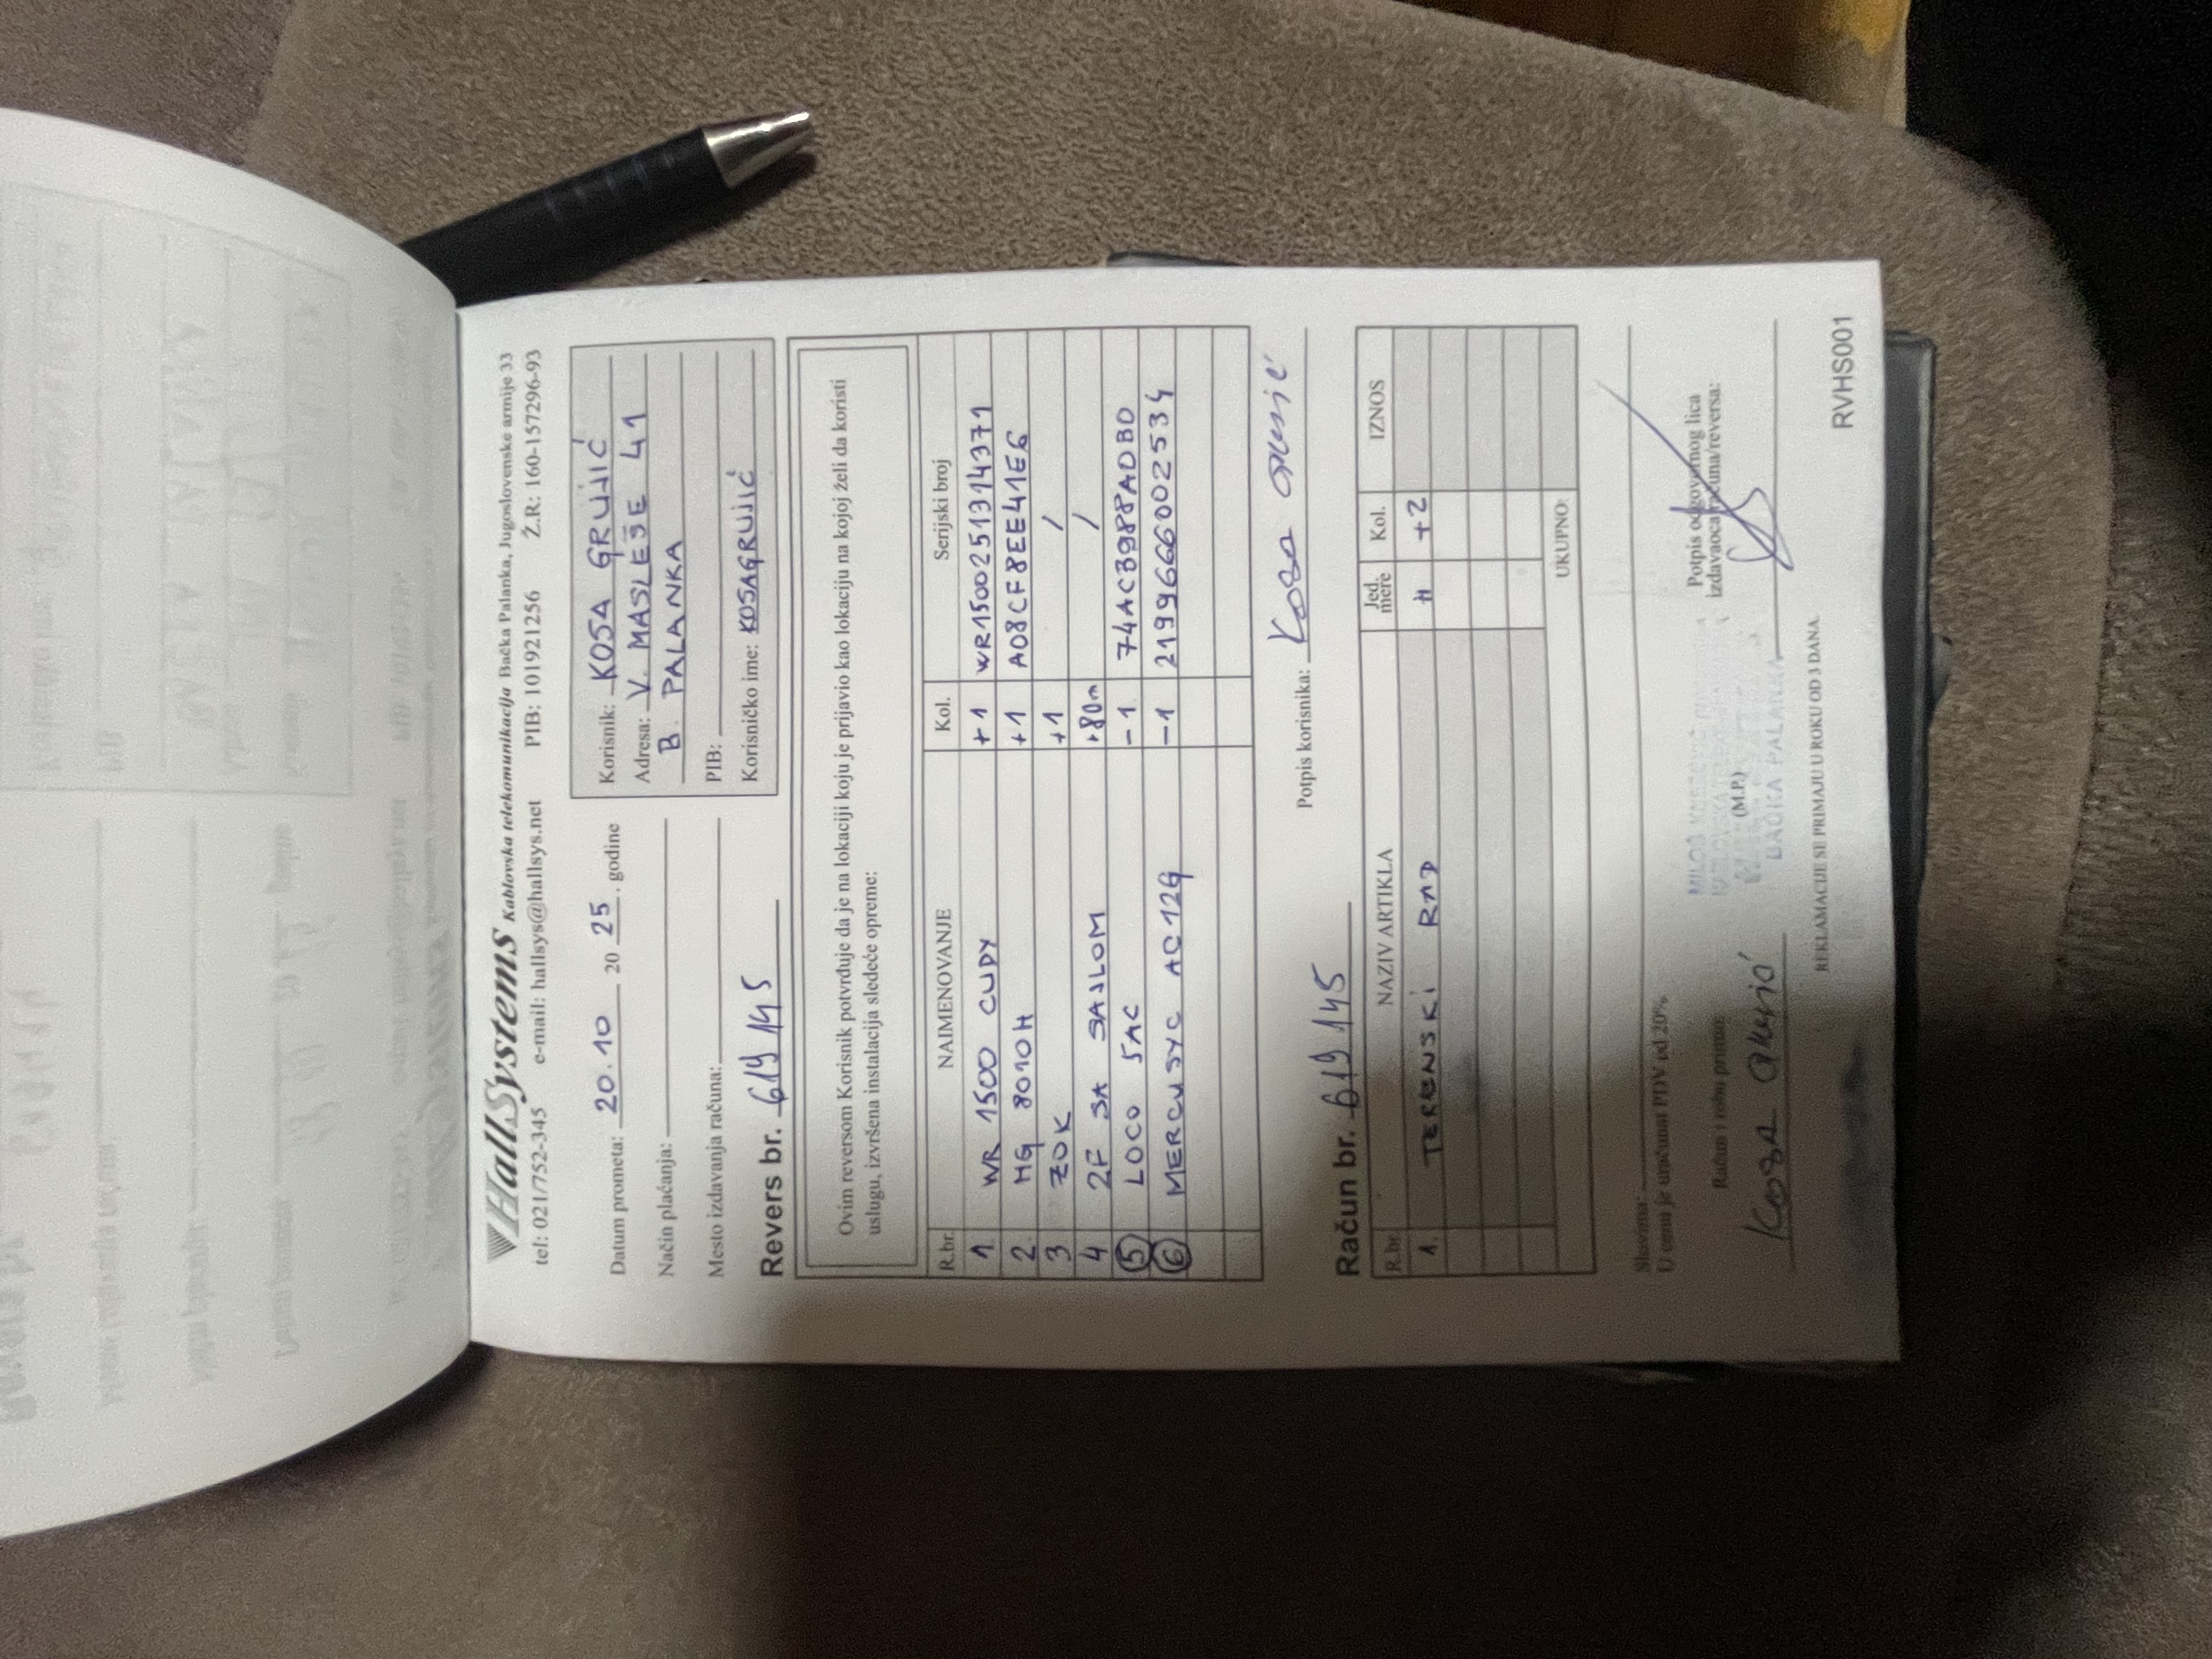 HallSystems Kablovska telekomunikacija Bačka Palanka, Jugoslovenske armije 33
tel: 021/752-345 e-mail: hallsys@hallsys.net PIB: 101921256 Ž.R: 160-157296-93
Datum prometa: 20.10 20 25. godine
Način plaćanja:
Mesto izdavanja računa:
Korisnik: KOSA GRUJIĆ
Adresa: V. MASLEŠE 41
B. PALANKA
PIB:
Korisničko ime: KOSAGRUJIĆ
Revers br. 619 145
Ovim reversom Korisnik potvrđuje da je na lokaciji koju je prijavio kao lokaciju na kojoj želi da koristi
uslugu, izvršena instalacija sledeće opreme:
R.br. NAIMENOVANJE Kol. Serijski broj
1. WR 1500 CUDY +1 WR1500251314371
2. HG 8010H +1 A08CF8EE41E6
3 ZOK +1 /
4 2F SA SAJLOM +80m /
5 LOCO 5AC -1 74AC3988ADBD
6 MERCUSYC AC12G -1 2199666002534
Potpis korisnika: Kosa
Račun br. 619 145
R.br. NAZIV ARTIKLA Jed. mere Kol. IZNOS
1. TERENSKI RAD H +2
UKUPNO:
Slovima:
U cenu je uračunat PDV od 20%
Račun i robu primio:
Kosa
(M.P.)
BAČKA PALANKA
Potpis odgovornog lica
izdavaoca računa/reversa:
REKLAMACIJE SE PRIMAJU U ROKU OD 3 DANA.
RVHS001